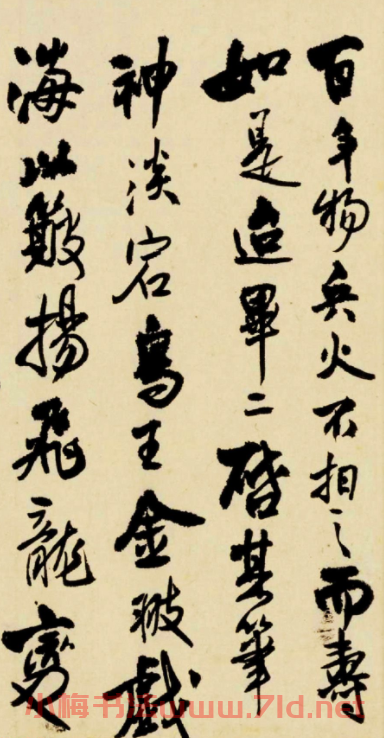 百年物兵火不相之而壽
如是迨畢二啓其筆
神淡宕鳥王金翅戲
海以簸揚飛龍
小梅书法www.7ld.net